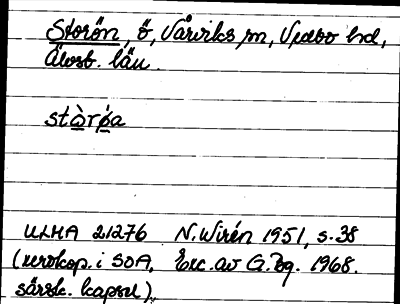 Storön, ö, Vårviks sn, Vedbo hd,
Älvsb. län.
stòrǿa
ULMA 21276 N. Wirén 1951, s. 38
(xerokop. i SOA, Exc. av G. Bg. 1968.
särsk. kapsel).